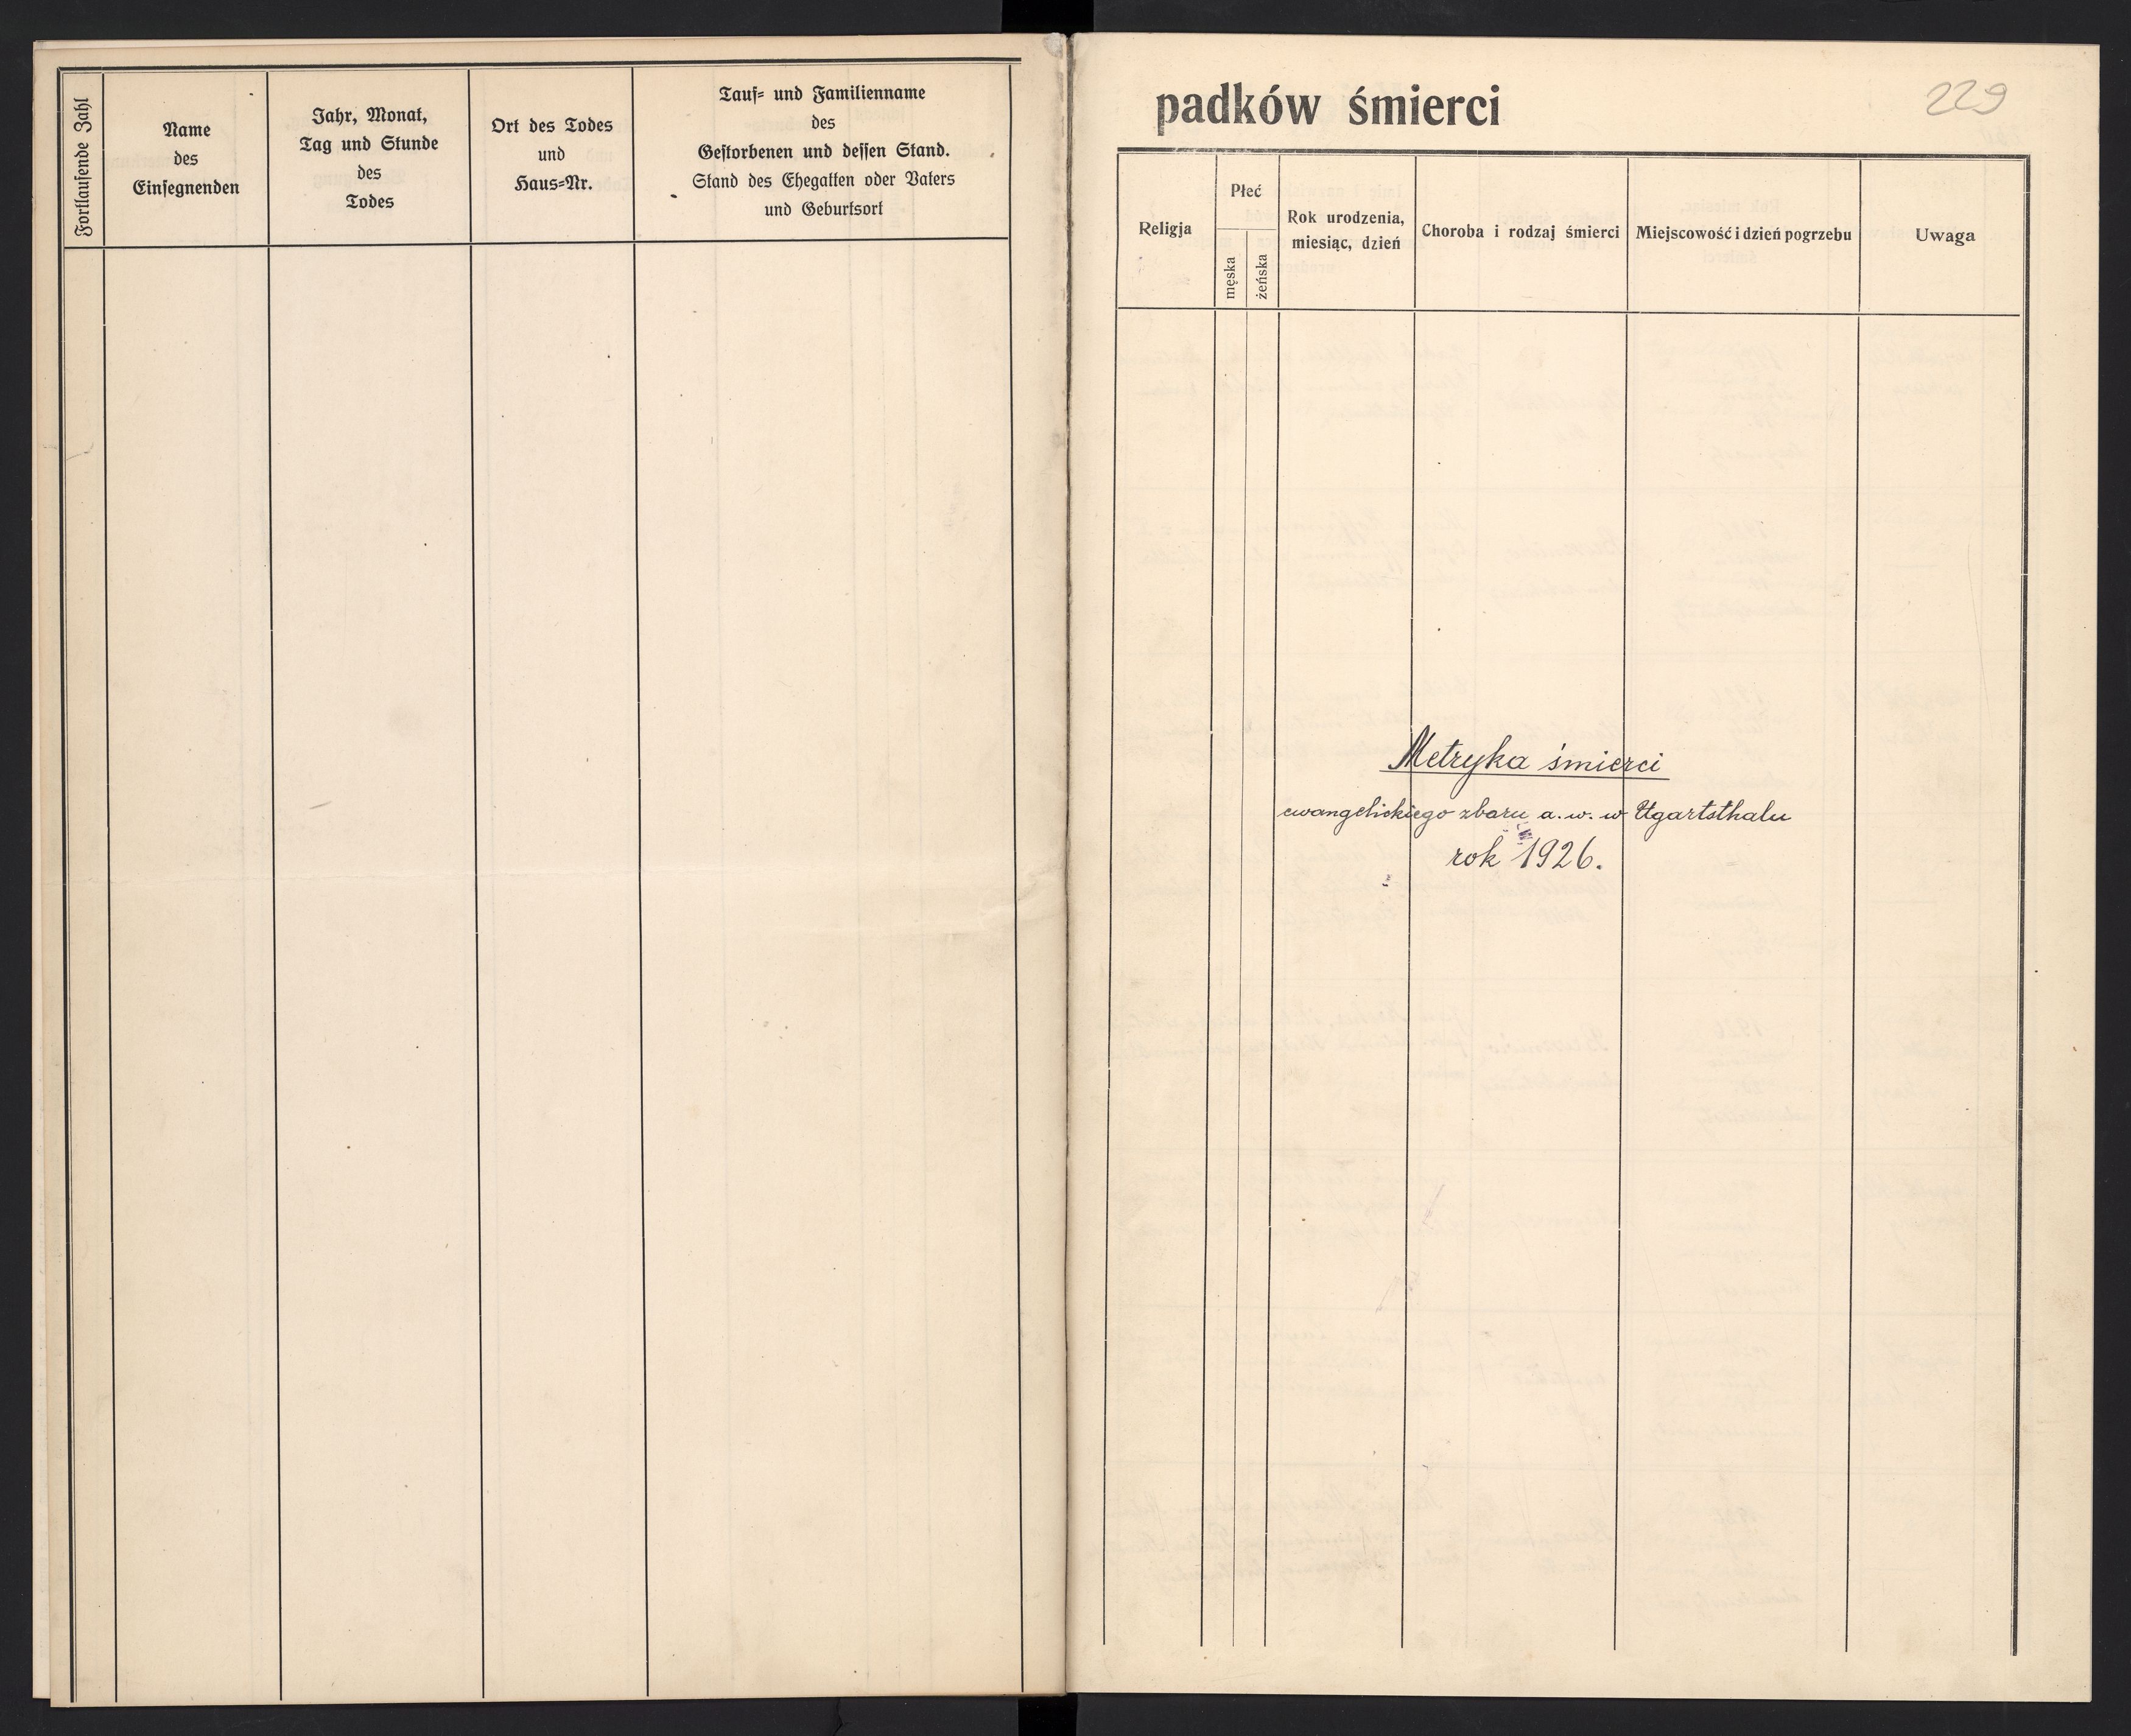 Fortlaufende Zahl
Name
des
Einsegnenden
Jahr, Monat,
Tag und Stunde
des
Todes
Ort des Todes
und
Haus-Nr.
Tauf- und Familienname
des
Gestorbenen und dessen Stand.
Stand des Ehegatten oder Vaters
und Geburtsort
padków śmierci
229
Religja
Płeć
męska
żeńska
Rok urodzenia,
miesiąc, dzień
Choroba i rodzaj śmierci
Miejscowość i dzień pogrzebu
Uwaga
Metryka śmierci
ewangelickiego zboru a. w. w Ugartsthalu
rok 1926.